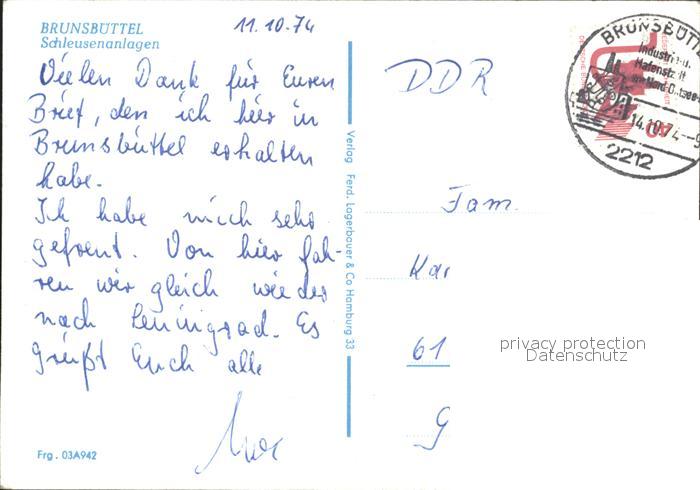 BRUNSBÜTTEL
Schleusenanlagen
11.10.74
Vielen Dank für Euren
Brief, den ich hier in
Brunsbüttel erhalten
habe.
Ich habe mich sehr
gefreut. Von hier fah-
ren wir gleich wieder
nach Leningrad. Es
grüßt Euch alle
Frg. 03A942
Verlag Ferd. Lagerbauer & Co Hamburg 33
DDR
Fam.
Kar
61
G
privacy protection
Datenschutz
BRUNSBÜTT
Industrie-u.
Hafenstadt
14.10.74-9
2212